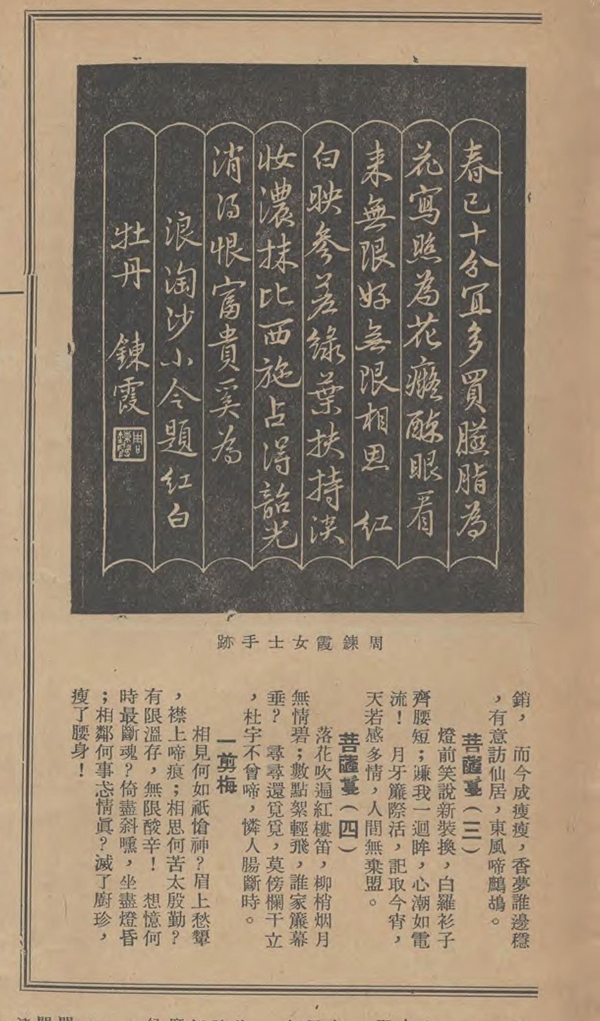 春已十分宜多買臙脂為
花寫照為花癡醉眼看
来無限好無限相思 紅
白映參差綠葉扶持淡
妝濃抹比西施占得韶光
消得恨富貴奚為
浪淘沙小令題紅白
牡丹 鍊霞
周鍊霞女士手跡
銷，而今成瘦瘦，香夢誰邊穩
，有意訪仙居，東風啼鷓鴣。
菩薩蔓（三）
燈前笑說新裝換，白羅衫子
齊腰短；賺我一迴眸，心潮如電
流！ 月牙簾際活，記取今宵，
天若感多情，人間無棄盟。
菩薩蔓（四）
落花吹遍紅樓笛，柳梢烟月
無情碧；數點絮輕飛，誰家簾幕
垂？ 尋尋還覓覓，莫傍欄干立
，杜宇不曾啼，憐人腸斷時。
一剪梅
相見何如祇愴神？眉上愁顰
，襟上啼痕；相思何苦太殷勤？
有限溫存，無限酸辛！ 想憶何
時最斷魂？倚盡斜曛，坐盡燈昏
；相鄰何事忒情眞？減了廚珍，
瘦了腰身！